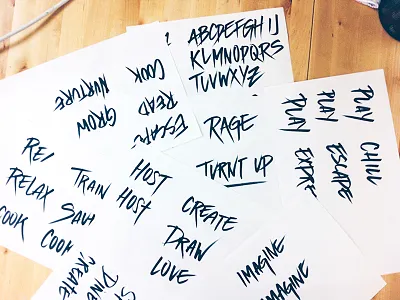 ABCDEFGHIJ
KLMNOPQRS
TUVWXYZ
COOK
NURTURE
READ
GROW
ESCAPE
RAGE
TURNT UP
PLAY
PLAY
PLAY
CHILL
ESCAPE
RELAX
TRAIN
HOST
HOST
COOK
SAVE
COOK
CREATE
DRAW
LOVE
IMAGINE
IMAGINE
CREATE